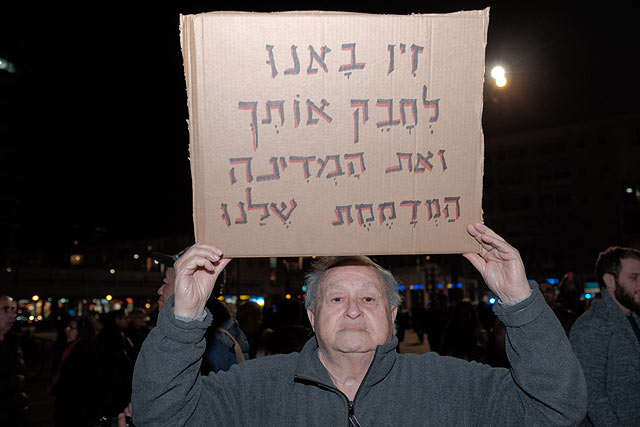 זִיו בָּאנוּ
לְחַבֵּק אוֹתְךָ
וְאת הַמְּדִינָה
הַמְּדַמֶּמֶת שֶׁלָּנוּ